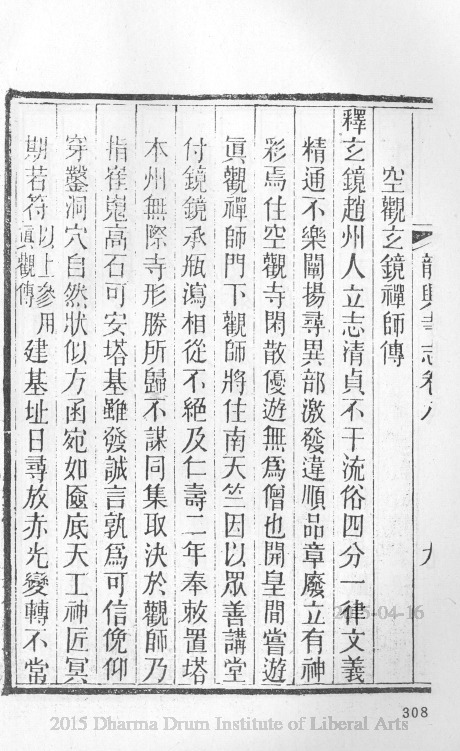 龍興寺志卷八
九
空觀玄鏡禪師傳
釋玄鏡趙州人立志清貞不干流俗四分一律文義
精通不樂闡揚尋異部激發違順品章廢立有神
彩焉住空觀寺閑散優遊無為僧也開皇間嘗遊
眞觀禪師門下觀師將住南天竺因以眾善講堂
付鏡鏡承瓶瀉相從不絕及仁壽二年奉敕置塔
本州無際寺形勝所歸不謀同集取決於觀師乃
指崔嵬高石可安塔基雖發誠言孰為可信俛仰
穿鑿洞穴自然狀似方函宛如匳底天工神匠冥
期若符以上參用眞觀傳建基址日尋放赤光變轉不常
2015-04-16
308
2015 Dharma Drum Institute of Liberal Arts